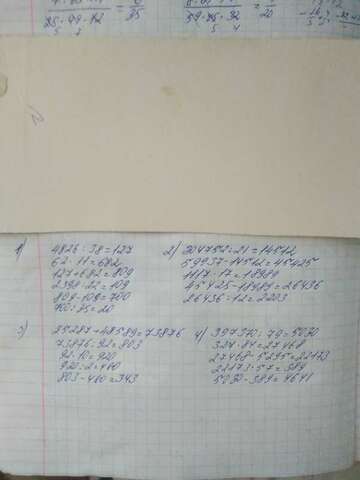 1) 4826 : 38 = 127
62 · 11 = 682
127 + 682 = 809
2398 : 22 = 109
809 - 109 = 700
700 : 35 = 20
2) 304752 : 21 = 14512
59937 - 14512 = 45425
1117 · 17 = 18989
45425 - 18989 = 26436
26436 : 12 = 2203
3) 25287 + 48589 = 73876
73876 : 92 = 803
92 · 10 = 920
920 : 2 = 460
803 - 460 = 343
4) 397370 : 79 = 5030
327 · 84 = 27468
27468 - 5295 = 22173
22173 : 57 = 389
5030 - 389 = 4641